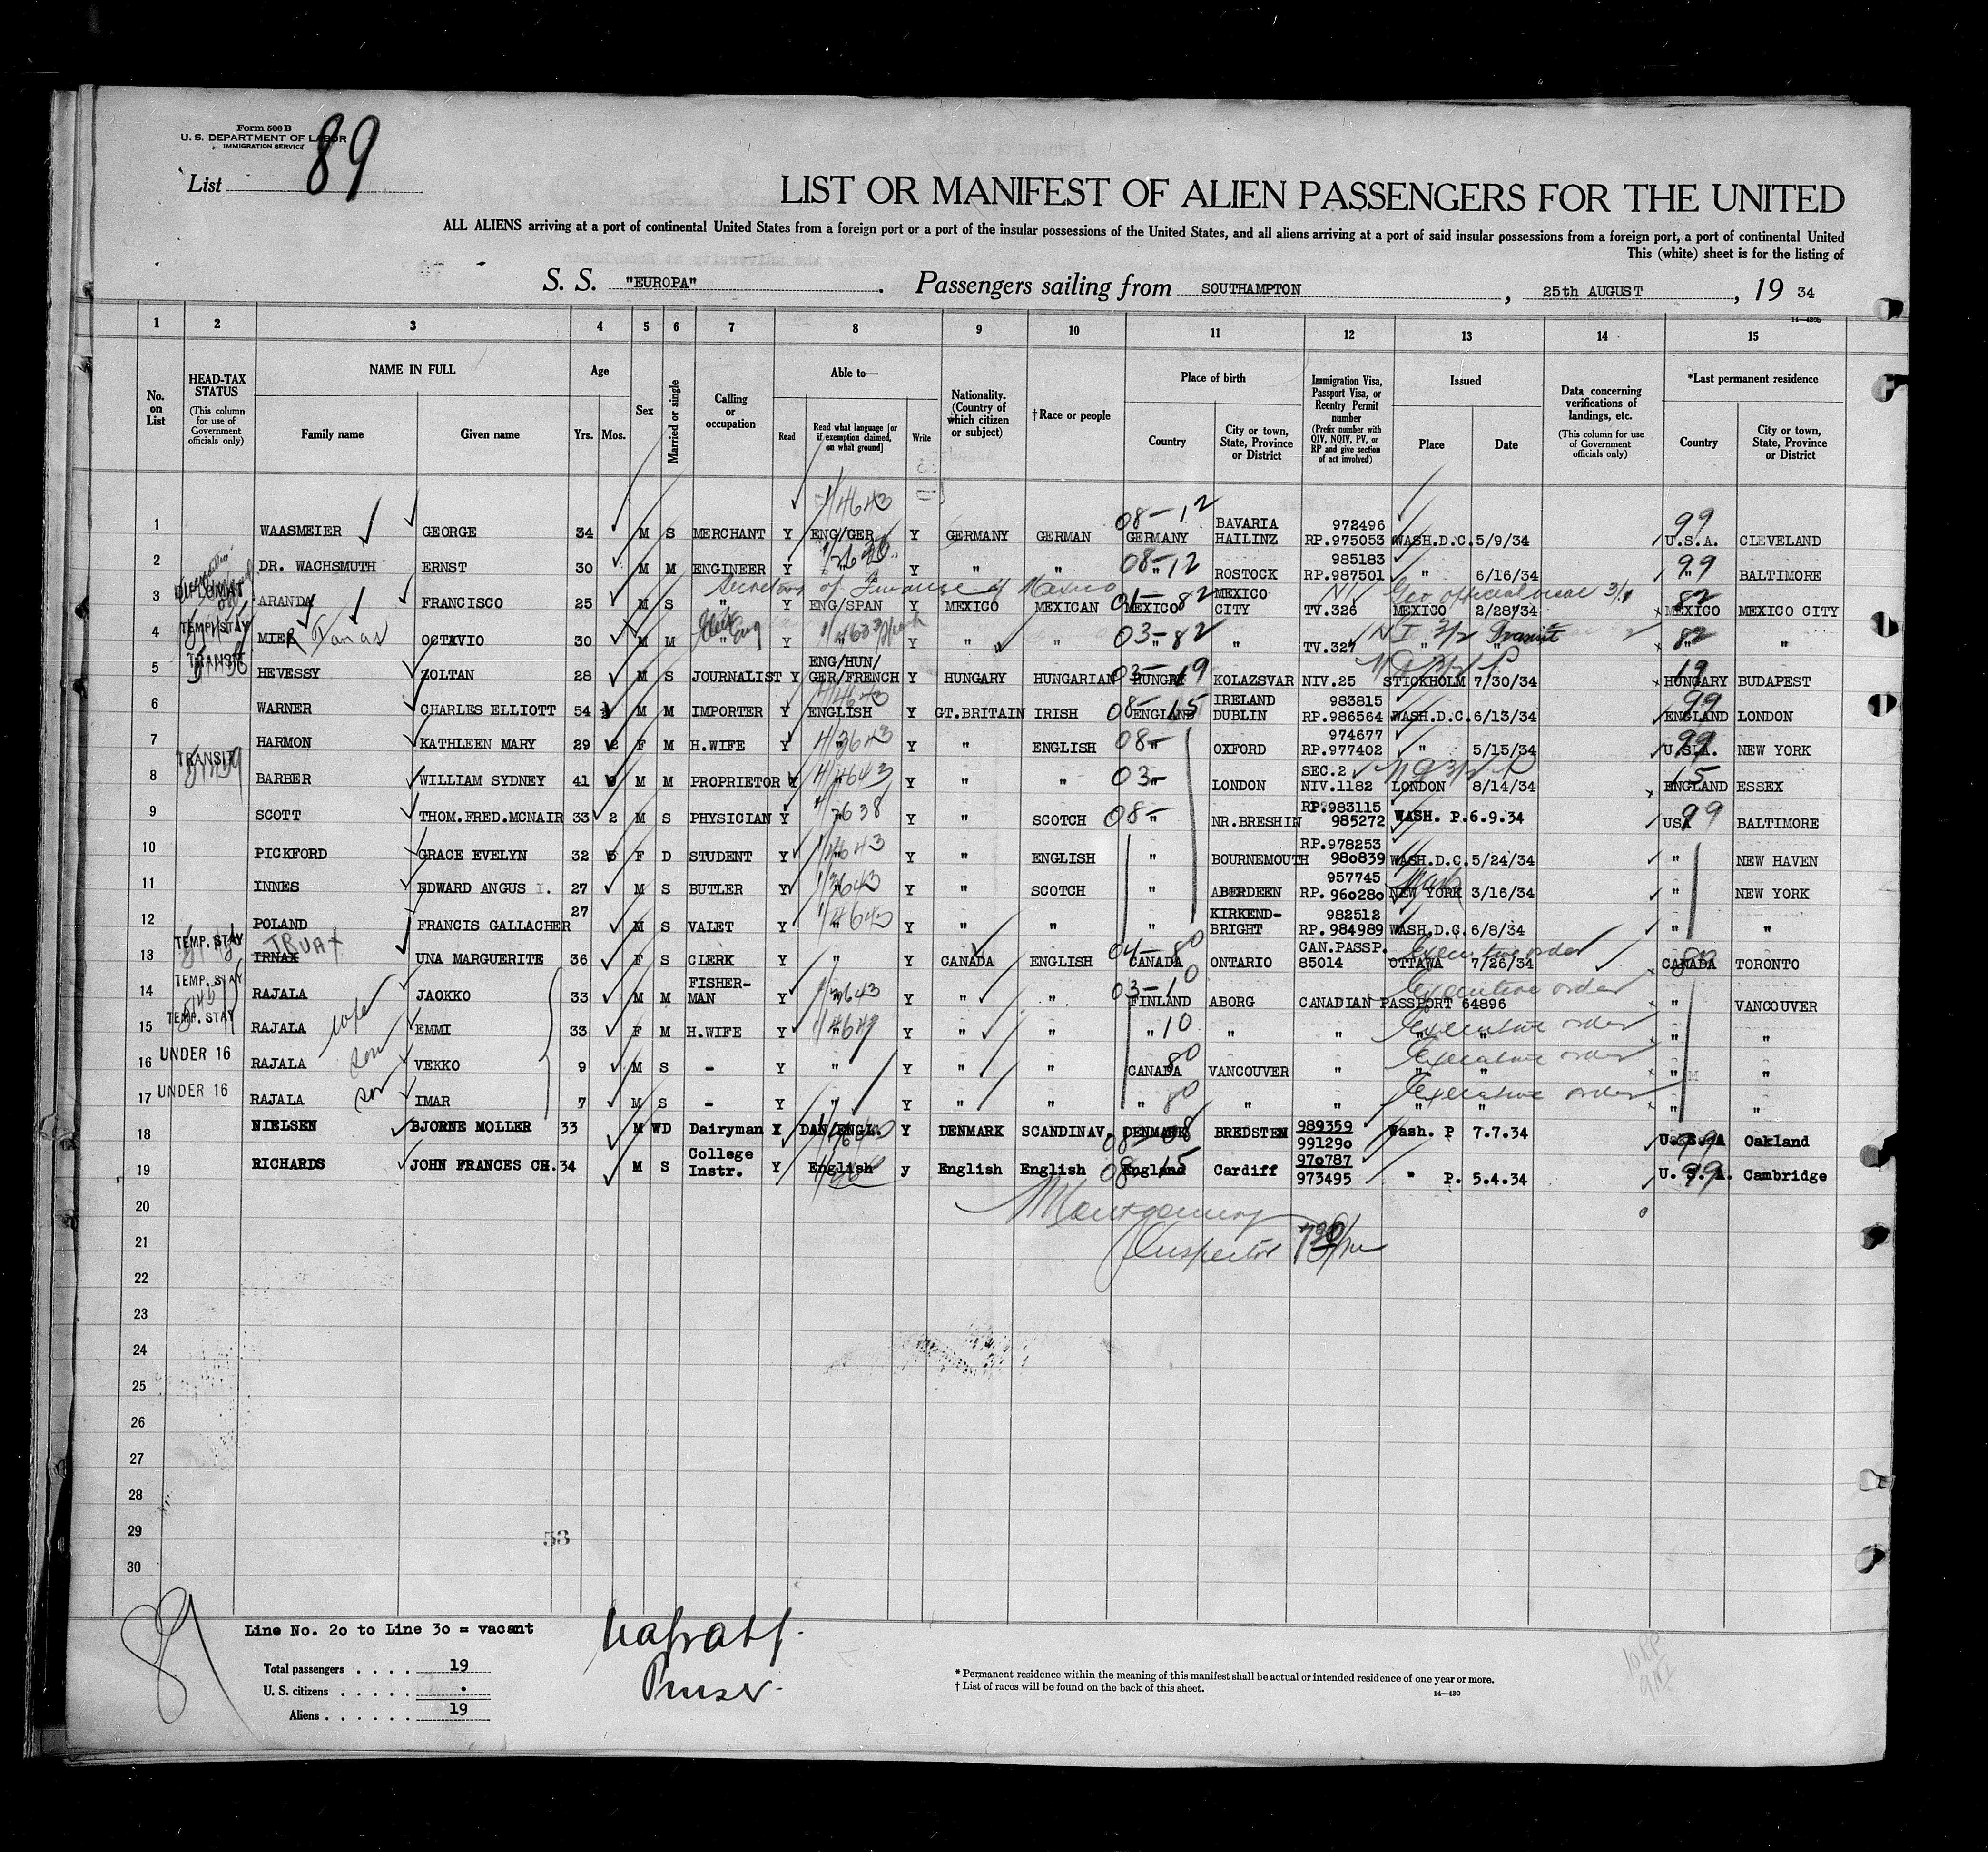 Form 500 B
U. S. DEPARTMENT OF LABOR
IMMIGRATION SERVICE
List 89
LIST OR MANIFEST OF ALIEN PASSENGERS FOR THE UNITED
ALL ALIENS arriving at a port of continental United States from a foreign port or a port of the insular possessions of the United States, and all aliens arriving at a port of said insular possessions from a foreign port, a port of continental United
This (white) sheet is for the listing of
S. S. "EUROPA". Passengers sailing from SOUTHAMPTON, 25th AUGUST, 19 34
14—430b
1 2 3 4 5 6 7 8 9 10 11 12 13 14 15
No. on List
HEAD-TAX STATUS (This column for use of Government officials only)
NAME IN FULL Family name Given name
Age Yrs. Mos.
Sex
Married or single
Calling or occupation
Able to— Read Read what language [or if exemption claimed, on what ground] Write
Nationality. (Country of which citizen or subject)
†Race or people
Place of birth Country City or town, State, Province or District
Immigration Visa, Passport Visa, or Reentry Permit number (Prefix number with QIV, NQIV, PV, or RP and give section of act involved)
Issued Place Date
Data concerning verifications of landings, etc. (This column for use of Government officials only)
*Last permanent residence Country City or town, State, Province or District
1 WAASMEIER GEORGE 34 M S MERCHANT Y ENG/GER Y GERMANY GERMAN 08-12 GERMANY BAVARIA HAILINZ 972496 RP.975053 WASH.D.C. 5/9/34 99 U.S.A. CLEVELAND
2 DR. WACHSMUTH ERNST 30 M M ENGINEER Y " Y " " 08-12 " ROSTOCK 985183 RP.987501 " 6/16/34 99 " BALTIMORE
Secretary of Finance of Mexico
3 DIPLOMAT ARANDA FRANCISCO 25 M S " Y ENG/SPAN Y MEXICO MEXICAN 01-82 MEXICO MEXICO CITY TV.326 MEXICO 2/28/34 82 MEXICO MEXICO CITY
4 TEMP. STAY MIER OCTAVIO 30 M M " Y " Y " " 03-82 " " TV.327 " " Transit 82 " "
5 TRANSIT HEVESSY ZOLTAN 28 M S JOURNALIST Y ENG/HUN/ GER/FRENCH Y HUNGARY HUNGARIAN 03-19 HUNGRY KOLAZSVAR NIV.25 STICKHOLM 7/30/34 19 HUNGARY BUDAPEST
6 WARNER CHARLES ELLIOTT 54 M M IMPORTER Y ENGLISH Y GT.BRITAIN IRISH 08-15 ENGLAND IRELAND DUBLIN 983815 RP.986564 WASH.D.C. 6/13/34 99 ENGLAND LONDON
7 HARMON KATHLEEN MARY 29 2 F M H.WIFE Y " Y " ENGLISH 08- " OXFORD 974677 RP.977402 " 5/15/34 99 U.S.A. NEW YORK
8 TRANSIT BARBER WILLIAM SYDNEY 41 M M PROPRIETOR Y " Y " " 03- " LONDON SEC.2 NIV.1182 LONDON 8/14/34 15 ENGLAND ESSEX
9 SCOTT THOM.FRED.MCNAIR 33 2 M S PHYSICIAN Y " Y " SCOTCH 08- " NR.BRESHIN RP.983115 985272 WASH. P. 6.9.34 99 USA BALTIMORE
10 PICKFORD GRACE EVELYN 32 5 F D STUDENT Y " Y " ENGLISH " BOURNEMOUTH RP.978253 980839 WASH.D.C. 5/24/34 " NEW HAVEN
11 INNES EDWARD ANGUS I. 27 M S BUTLER Y " Y " SCOTCH " ABERDEEN 957745 RP. 960280 NEW YORK 3/16/34 " NEW YORK
12 POLAND FRANCIS GALLACHER 27 M S VALET Y " Y " " " KIRKEND- BRIGHT 982512 RP. 984989 WASH.D.C. 6/8/34 " "
13 TEMP. STAY IRNAX TRUAX UNA MARGUERITE 36 F S CLERK Y " Y CANADA ENGLISH 04-80 CANADA ONTARIO CAN.PASSP. 85014 OTTAWA 7/26/34 Executive order 80 CANADA TORONTO
14 TEMP. STAY RAJALA JAOKKO 33 M M FISHER- MAN Y " Y " " 03-10 FINLAND ABORG CANADIAN PASSPORT 64896 Executive order " VANCOUVER
15 TEMP. STAY RAJALA wife EMMI 33 F M H.WIFE Y " Y " " " 10 " " " " Executive order " "
16 UNDER 16 RAJALA son VEKKO 9 M S - Y " Y " " 80 CANADA VANCOUVER " " " Executive order " "
17 UNDER 16 RAJALA son IMAR 7 M S - Y " Y " " " 80 " " " " Executive order " "
18 NIELSEN BJORNE MOLLER 33 M WD Dairyman Y DAN/ENGL. Y DENMARK SCANDINAV. DENMARK BREDSTEN 989359 991290 Wash. P 7.7.34 99 U. S. A Oakland
19 RICHARDS JOHN FRANCES CH. 34 M S College Instr. Y English y English English 08-15 England Cardiff 970787 973495 " P. 5.4.34 99 U. S. A. Cambridge
20 Montgomery
21 Inspector
22
23
24
25
26
27
28
29 53
30
89
Line No. 20 to Line 30 = vacant
Total passengers . . . . 19
U. S. citizens . . . . .
Aliens . . . . . . 19
* Permanent residence within the meaning of this manifest shall be actual or intended residence of one year or more.
† List of races will be found on the back of this sheet.
14—430